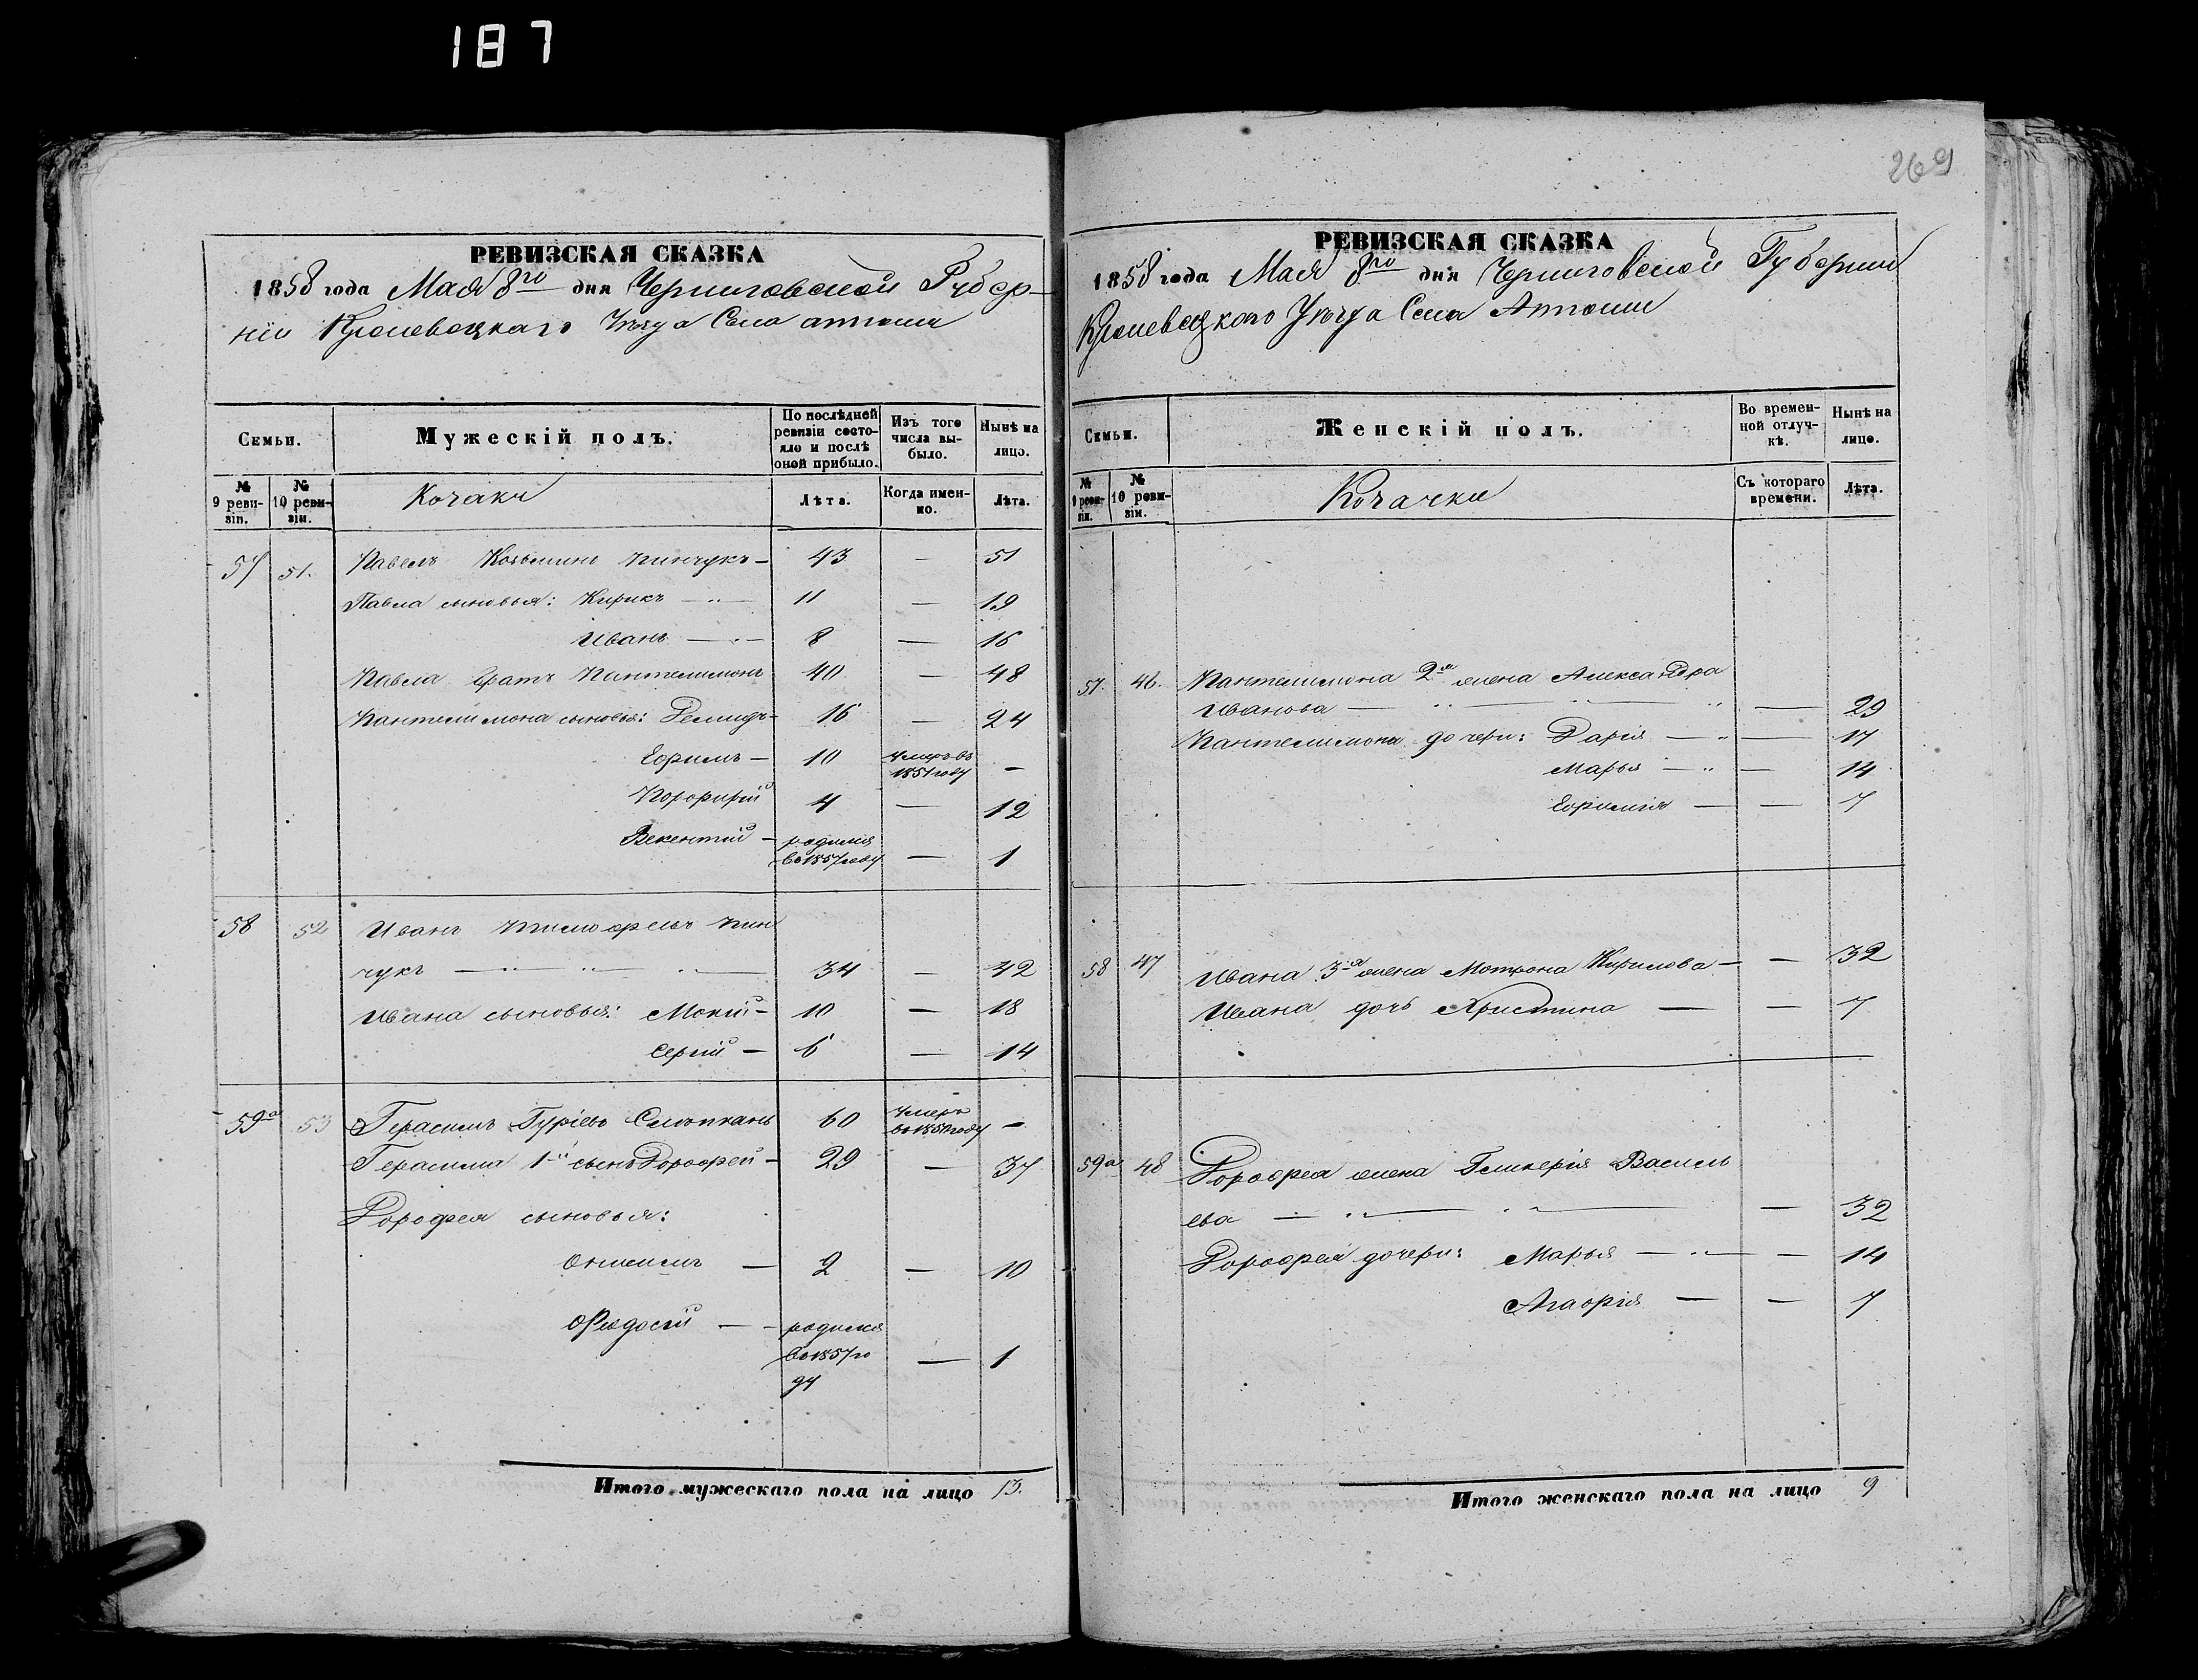 187
269
РЕВИЗСКАЯ СКАЗКА
1858 года Мая 8го дня Черниговской Губер-
ніи Кролевецкаго Уѣзда Села
Семьи.
Мужескій полъ.
По послѣдней ревизіи состояло и послѣ оной прибыло.
Изъ того числа выбыло.
Нынѣ на лицо.
№ 9 ревизіи.
№ 10 ревизіи.
Козаки
Лѣта.
Когда именно.
Лѣта.
57 51. Павелъ Козьминъ Пинчукъ — 43 — 51
Павла сыновья: Кирикъ — 11 — 19
Иванъ — 8 — 16
Павла братъ Пантелимонъ 40 — 48
Пантелимона сыновья: Демидъ — 16 — 24
Ефимъ — 10 Умеръ въ 1851 году —
Порфирій 4 — 12
Викентій — родился въ 1857 году — 1
58 52 Иванъ Пин
чукъ — 34 — 42
Ивана сыновья: Мокій — 10 — 18
Сергій — 6 — 14
59а 53 Герасимъ Гуріевъ 60 Умеръ —
Герасима 1й сынъ Дорофей — 29 — 37
Дорофея сыновья:
Онисимъ — 2 — 10
Феодосій — родился въ 1857 го
ду — 1
Итого мужескаго пола на лицо 13.
РЕВИЗСКАЯ СКАЗКА
1858 года Мая 8го дня Черниговской Губерніи
Кролевецкого Уѣзда Села
Семьи.
Женскій полъ.
Во временной отлучкѣ.
Нынѣ на лицо.
№ 9 ревизіи.
№ 10 ревизіи.
Козачки
Съ котораго времени.
Лѣта.
57. 46. Пантелимона 2я жена Александра
Иванова — — 29
Пантелимона дочери: Дарія — — 17
Марья — — 14
Ефимія — — 7
58 47 Ивана 3я жена Мотрона Кирилова — — 32
Ивана дочь Христина — — 7
59а 48 Дорофея жена Гликерія Василь
ева — — 32
Дорофея дочери: Марья — — 14
Агафія — — 7
Итого женскаго пола на лицо 9